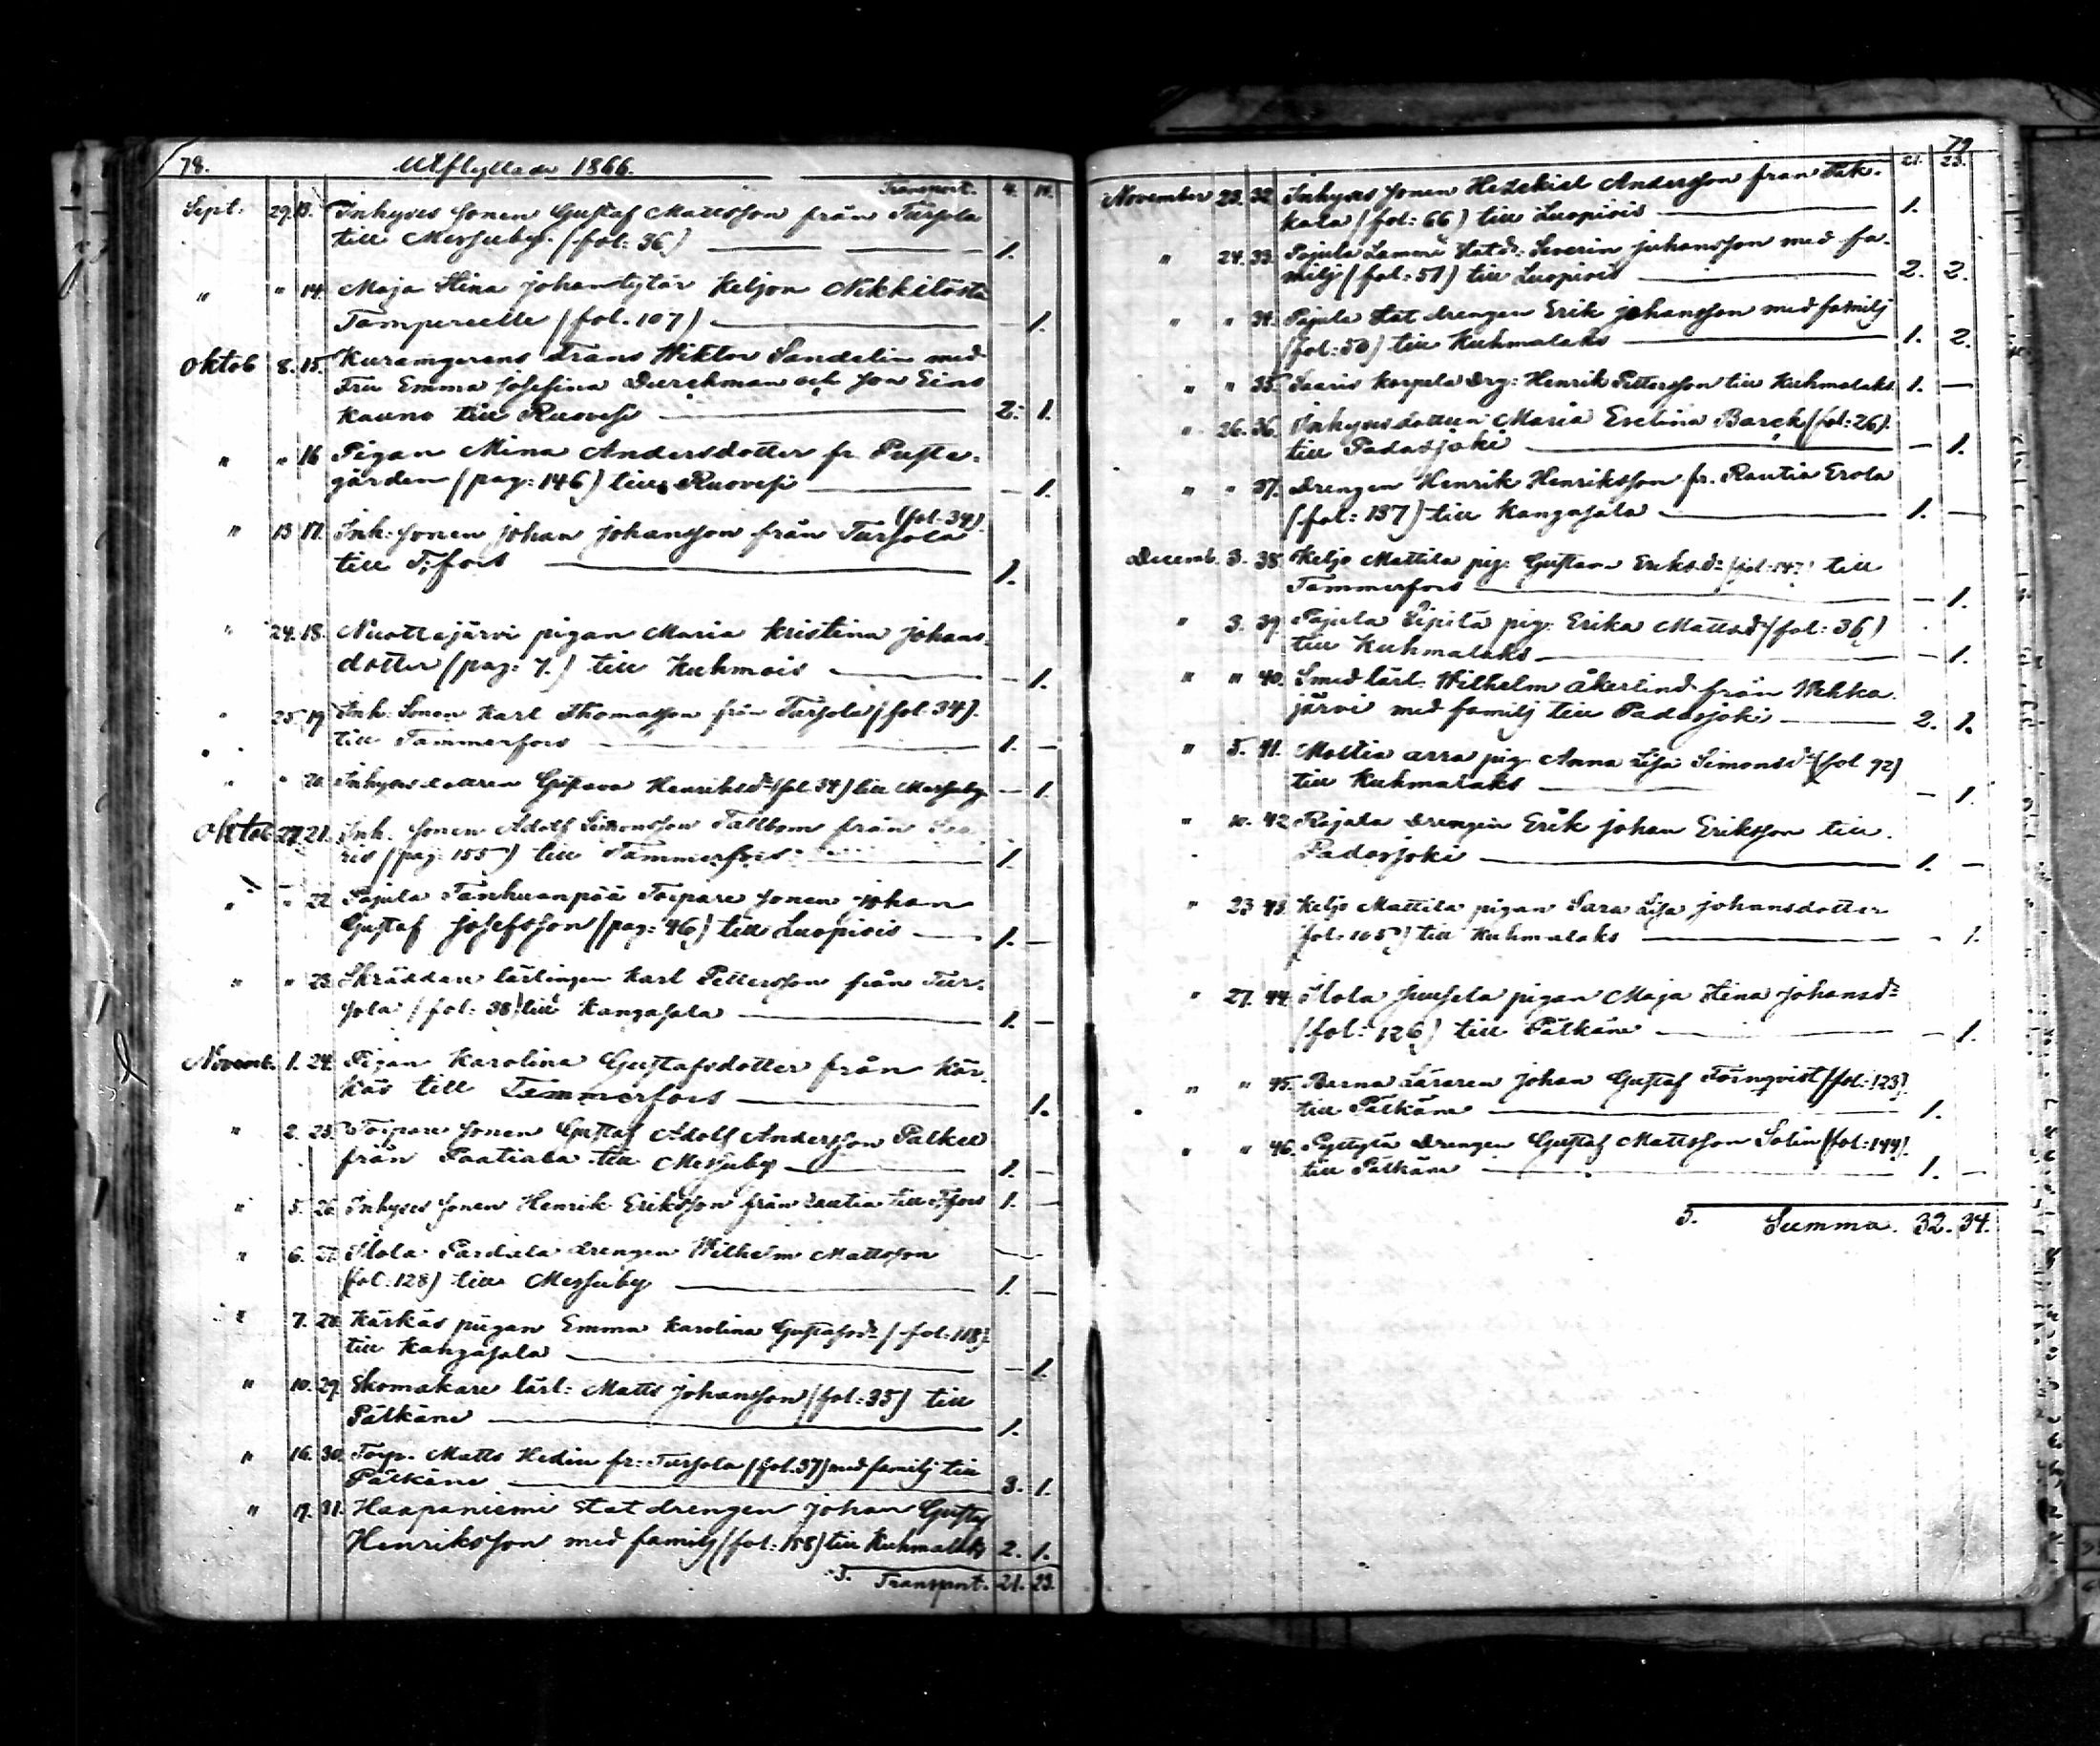 78. Utflyttade 1866.
Transport. 4. 14.
Sept. 29. 13. Inhyses sonen Gustaf Mattsson från Tursola
till Messuby. (fol: 36) 1.
" " 14. Maja Stina Johantytär Keljon Nikkilästä
Tampereelle (fol. 107) — 1.
Oktob 8. 15. Frans Wiktor Sandelin med
Fru Emma Josefina Durchman och son Eins
Kauno till Ruovesi 2. 1.
" " 16 Pigan Mina Andersdotter fr. Preste-
gården (pag: 146) till Ruovesi — 1.
(fol. 34).
" 13 17. Inh. sonen Johan Johansson från Tursola
till T:fors 1.
" 24. 18. Nuottajärvi pigan Maria Kristina Johans-
dotter (pag: 7.) till Kuhmois — 1.
" 25. 19 Inh. Sonen Karl Thomasson från Tursola (fol. 34).
till Tammerfors 1. —
" " 20. Inhysesdottren Gustava Henriksdr (fol. 34) till Messuby — 1.
Oktob 27. 21. Inh. sonen Adolf Simonsson Tallbom från Saa-
ris (pag: 155) till Tammerfors 1.
" " 22. Pajula Tanhuanpää Torpare sonen Johan
Gustaf Josefsson (pag: 46) till Luopiois 1. —
" " 23. Skräddare lärlingen Karl Pettersson från Tur-
sola (fol: 38) till Kangasala 1. —
Novemb. 1. 24. Pigan Karolina Gustafsdotter från Kär-
käs till Tammerfors 1.
" 2. 25. Torpare sonen Gustaf Adolf Andersson Palkee
från Paatiala till Messuby 1. —
" 5. 26. Inhyses sonen Henrik Eriksson från Rautia till T:fors 1. —
" 6. 27. Ilola Pardala drengen Wilhelm Mattsson
(fol: 128) till Messuby 1. —
" 7. 28. Kärkäs pigan Emma Karolina Gustafsdr (fol: 118).
till Kangasala — 1.
" 10. 29. Skomakare lärl: Matts Johansson (fol: 35) till
Pälkäne 1.
" 16. 30. Torp. Matts Hedin fr: Tursola (fol. 37) med familj till
Pälkäne 3. 1.
" 17. 31. Haapaniemi statdrengen Johan Gustaf
Henriksson med familj (fol: 155) till Kuhmalaks 2. 1.
S. Transport. 21. 23.
79
21. 23.
November 23. 32. Inhyses sonen Hezekiel Andersson från Pak-
kala (fol: 66) till Luopiois 1.
" 24. 33. Pajula Lammi Statdr: Severin Johansson med fa-
milj (fol: 51) till Luopiois 2. 2.
" " 34. Pajula Statdrengen Erik Johansson med familj
(fol: 50) till Kuhmalaks 1. 2.
" " 35. Saaris Korpela drg: Henrik Pettersson till Kuhmalaks 1. —
" 26. 36. Inhysesdottren Maria Evelina Barck (fol: 26).
till Padasjoki — 1.
" " 37. Drengen Henrik Henriksson fr. Rautia Erola
(fol: 137) till Kangasala 1. —
Decemb. 3. 38. Keljo Mattila pig. Gustava Eriksdr (fol: 147) till
Tammerfors — 1.
" 3. 39. Pajula Sipilä pig: Erika Mattsdr (fol: 36)
till Kuhmalaks — 1.
" " 40. Smed lärl. Wilhelm Åkerlind från Wehka-
järvi med familj till Padasjoki 2. 1.
" 5. 41. Mattia arra pig Anna Lisa Simonsdr (fol 92)
till Kuhmalaks — 1.
" 10. 42. Rajala Drengen Erik Johan Eriksson till
Padasjoki 1. —
" 23 43. Keljo Mattila pigan Sara Lisa Johansdotter
(fol: 105) till Kuhmalaks — 1.
" 27. 44. Ilola Juusela pigan Maja Stina Johansdr
(fol: 126) till Pälkäne — 1.
" " 45. Barna Läraren Johan Gustaf Törnqvist (fol: 123).
till Pälkäne 1.
" " 46. Pyttylä Drengen Gustaf Mattsson Solin (fol: 144).
till Pälkäne 1. —
S. Summa. 32. 34.